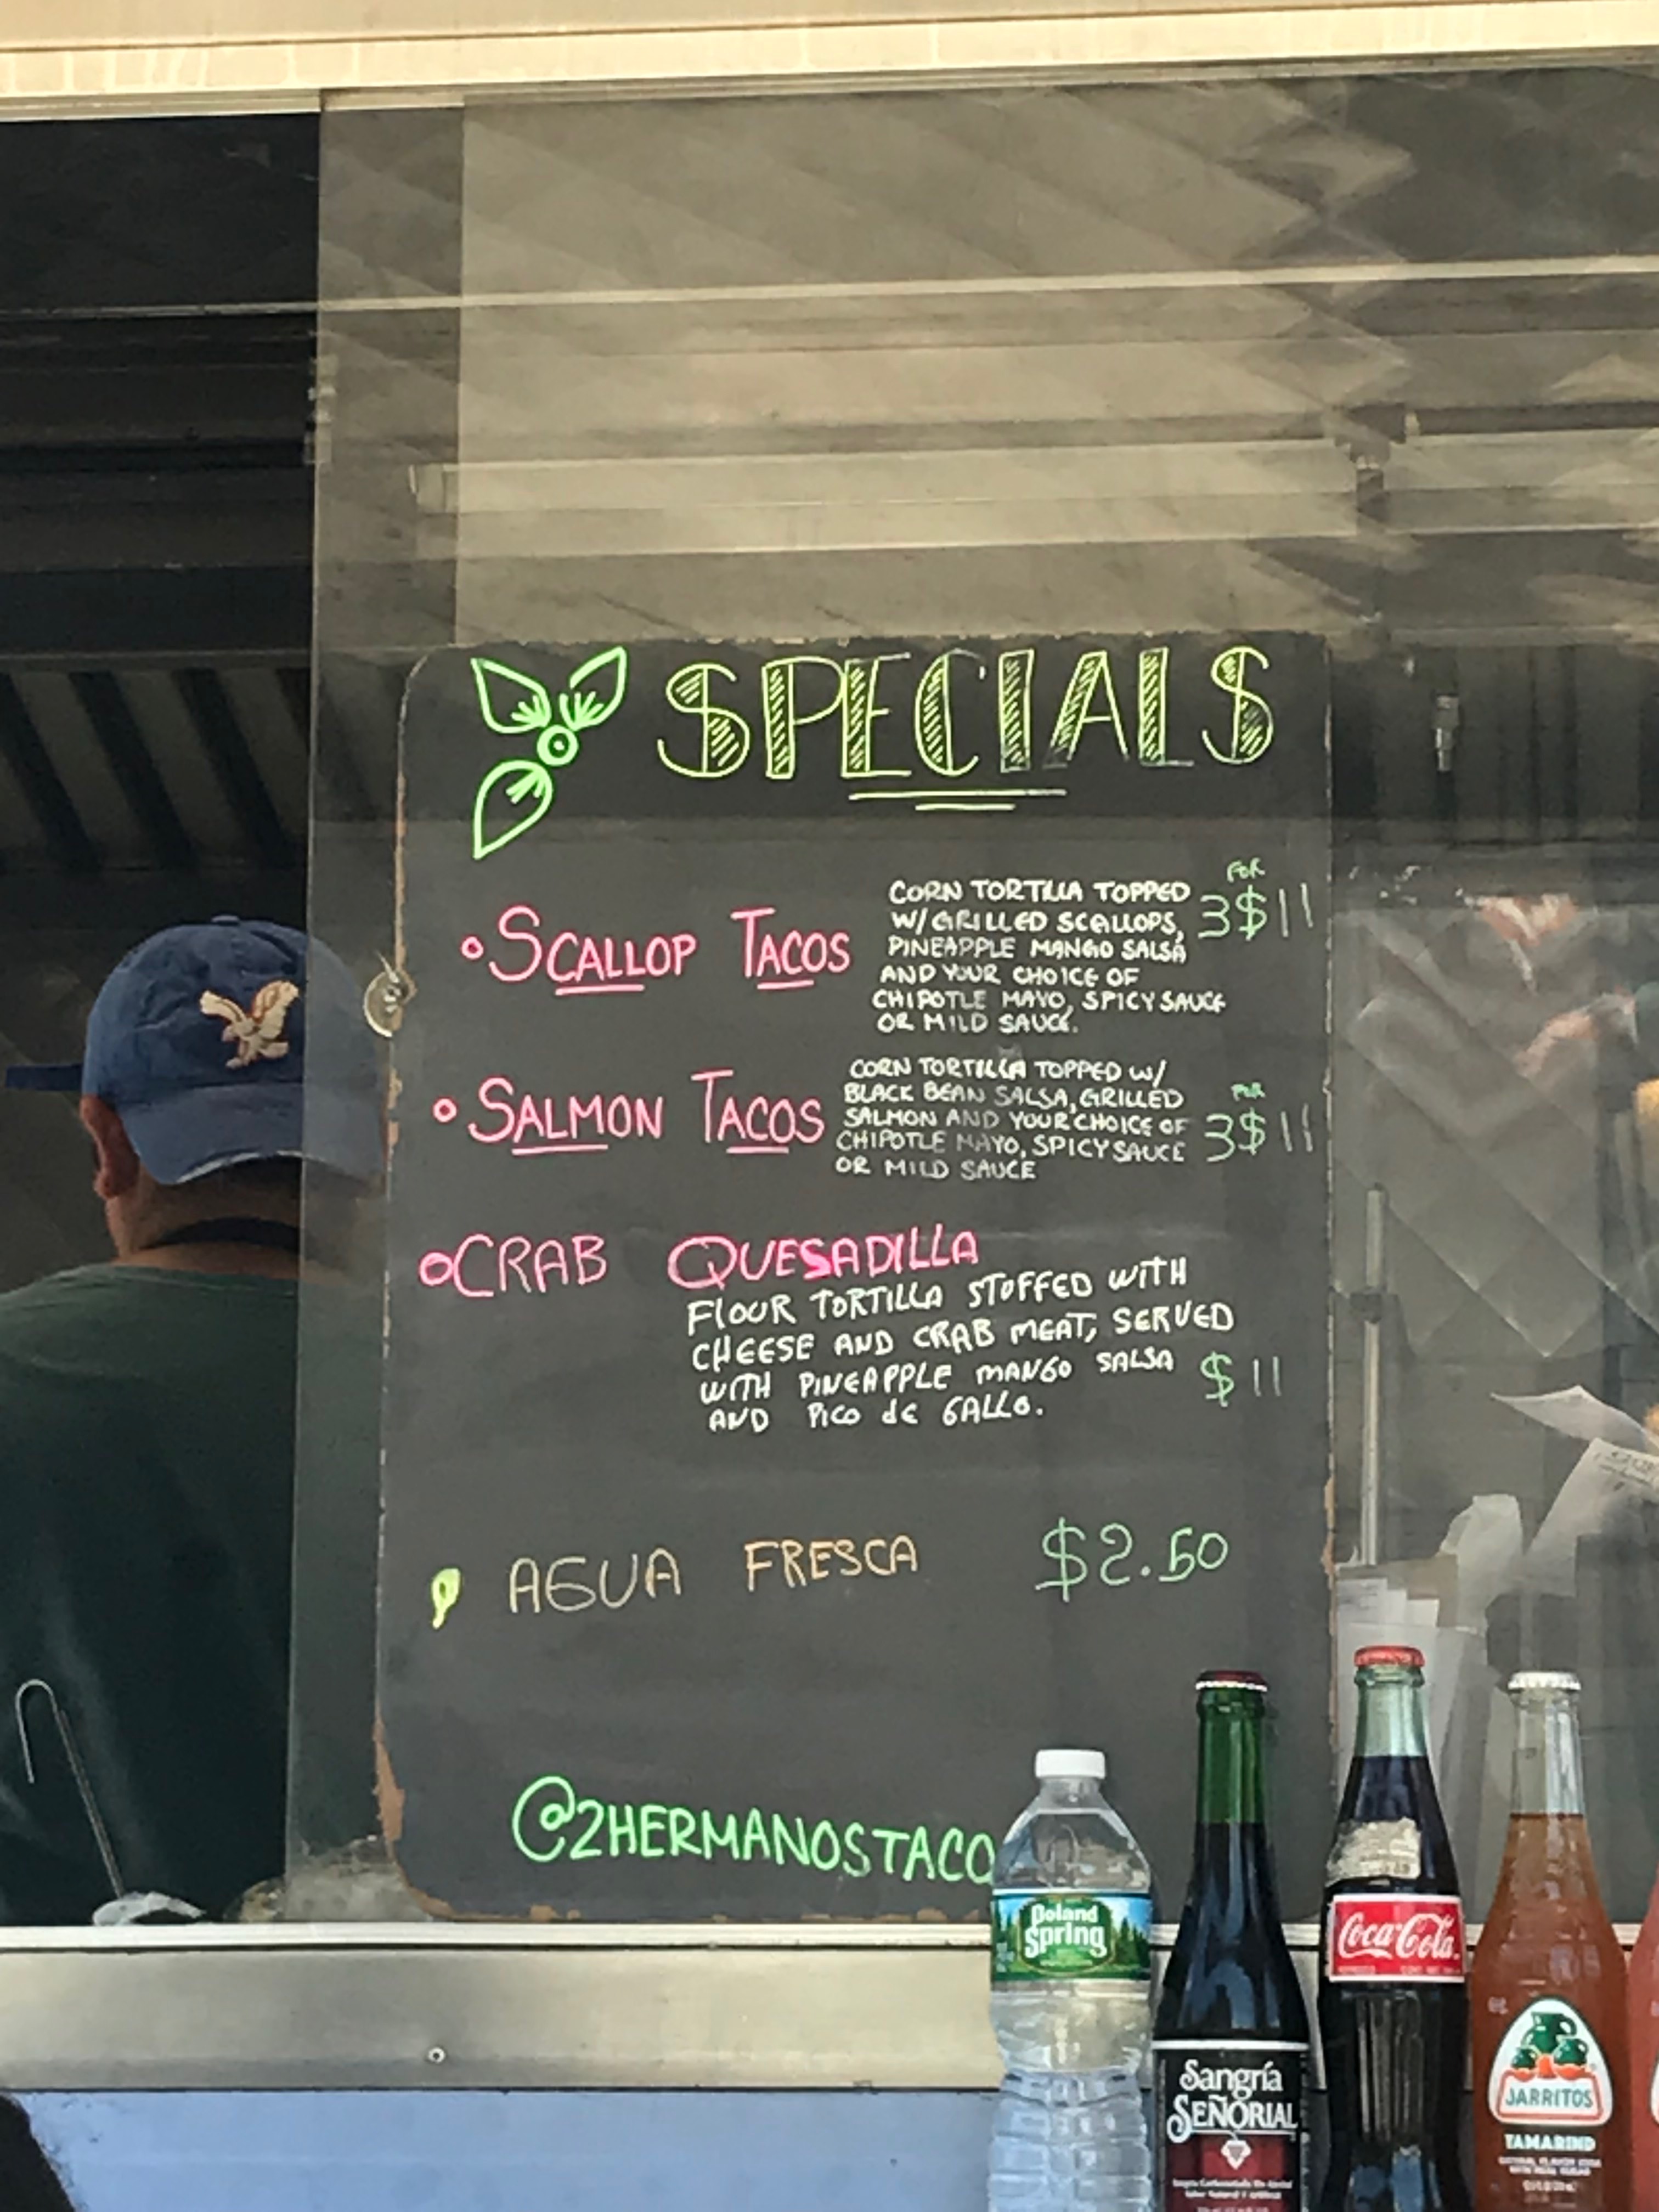 SPECIALS
SCALLOP TACOS
CORN TORTILLA TOPPED
W/ GRILLED SCALLOPS,
PINEAPPLE MANGO SALSA
AND YOUR CHOICE OF
CHIPOTLE MAYO, SPICY SAUCE
OR MILD SAUCE.
FOR
3$11
SALMON TACOS
CORN TORTILLA TOPPED W/
BLACK BEAN SALSA, GRILLED
SALMON AND YOUR CHOICE OF
CHIPOTLE MAYO, SPICY SAUCE
OR MILD SAUCE
FOR
3$11
CRAB QUESADILLA
FLOUR TORTILLA STUFFED WITH
CHEESE AND CRAB MEAT, SERVED
WITH PINEAPPLE MANGO SALSA
AND PICO de GALLO.
$11
AGUA FRESCA $2.50
@2HERMANOSTACO
Poland
Spring
Sangría
SEÑORIAL
Coca-Cola
JARRITOS
TAMARIND